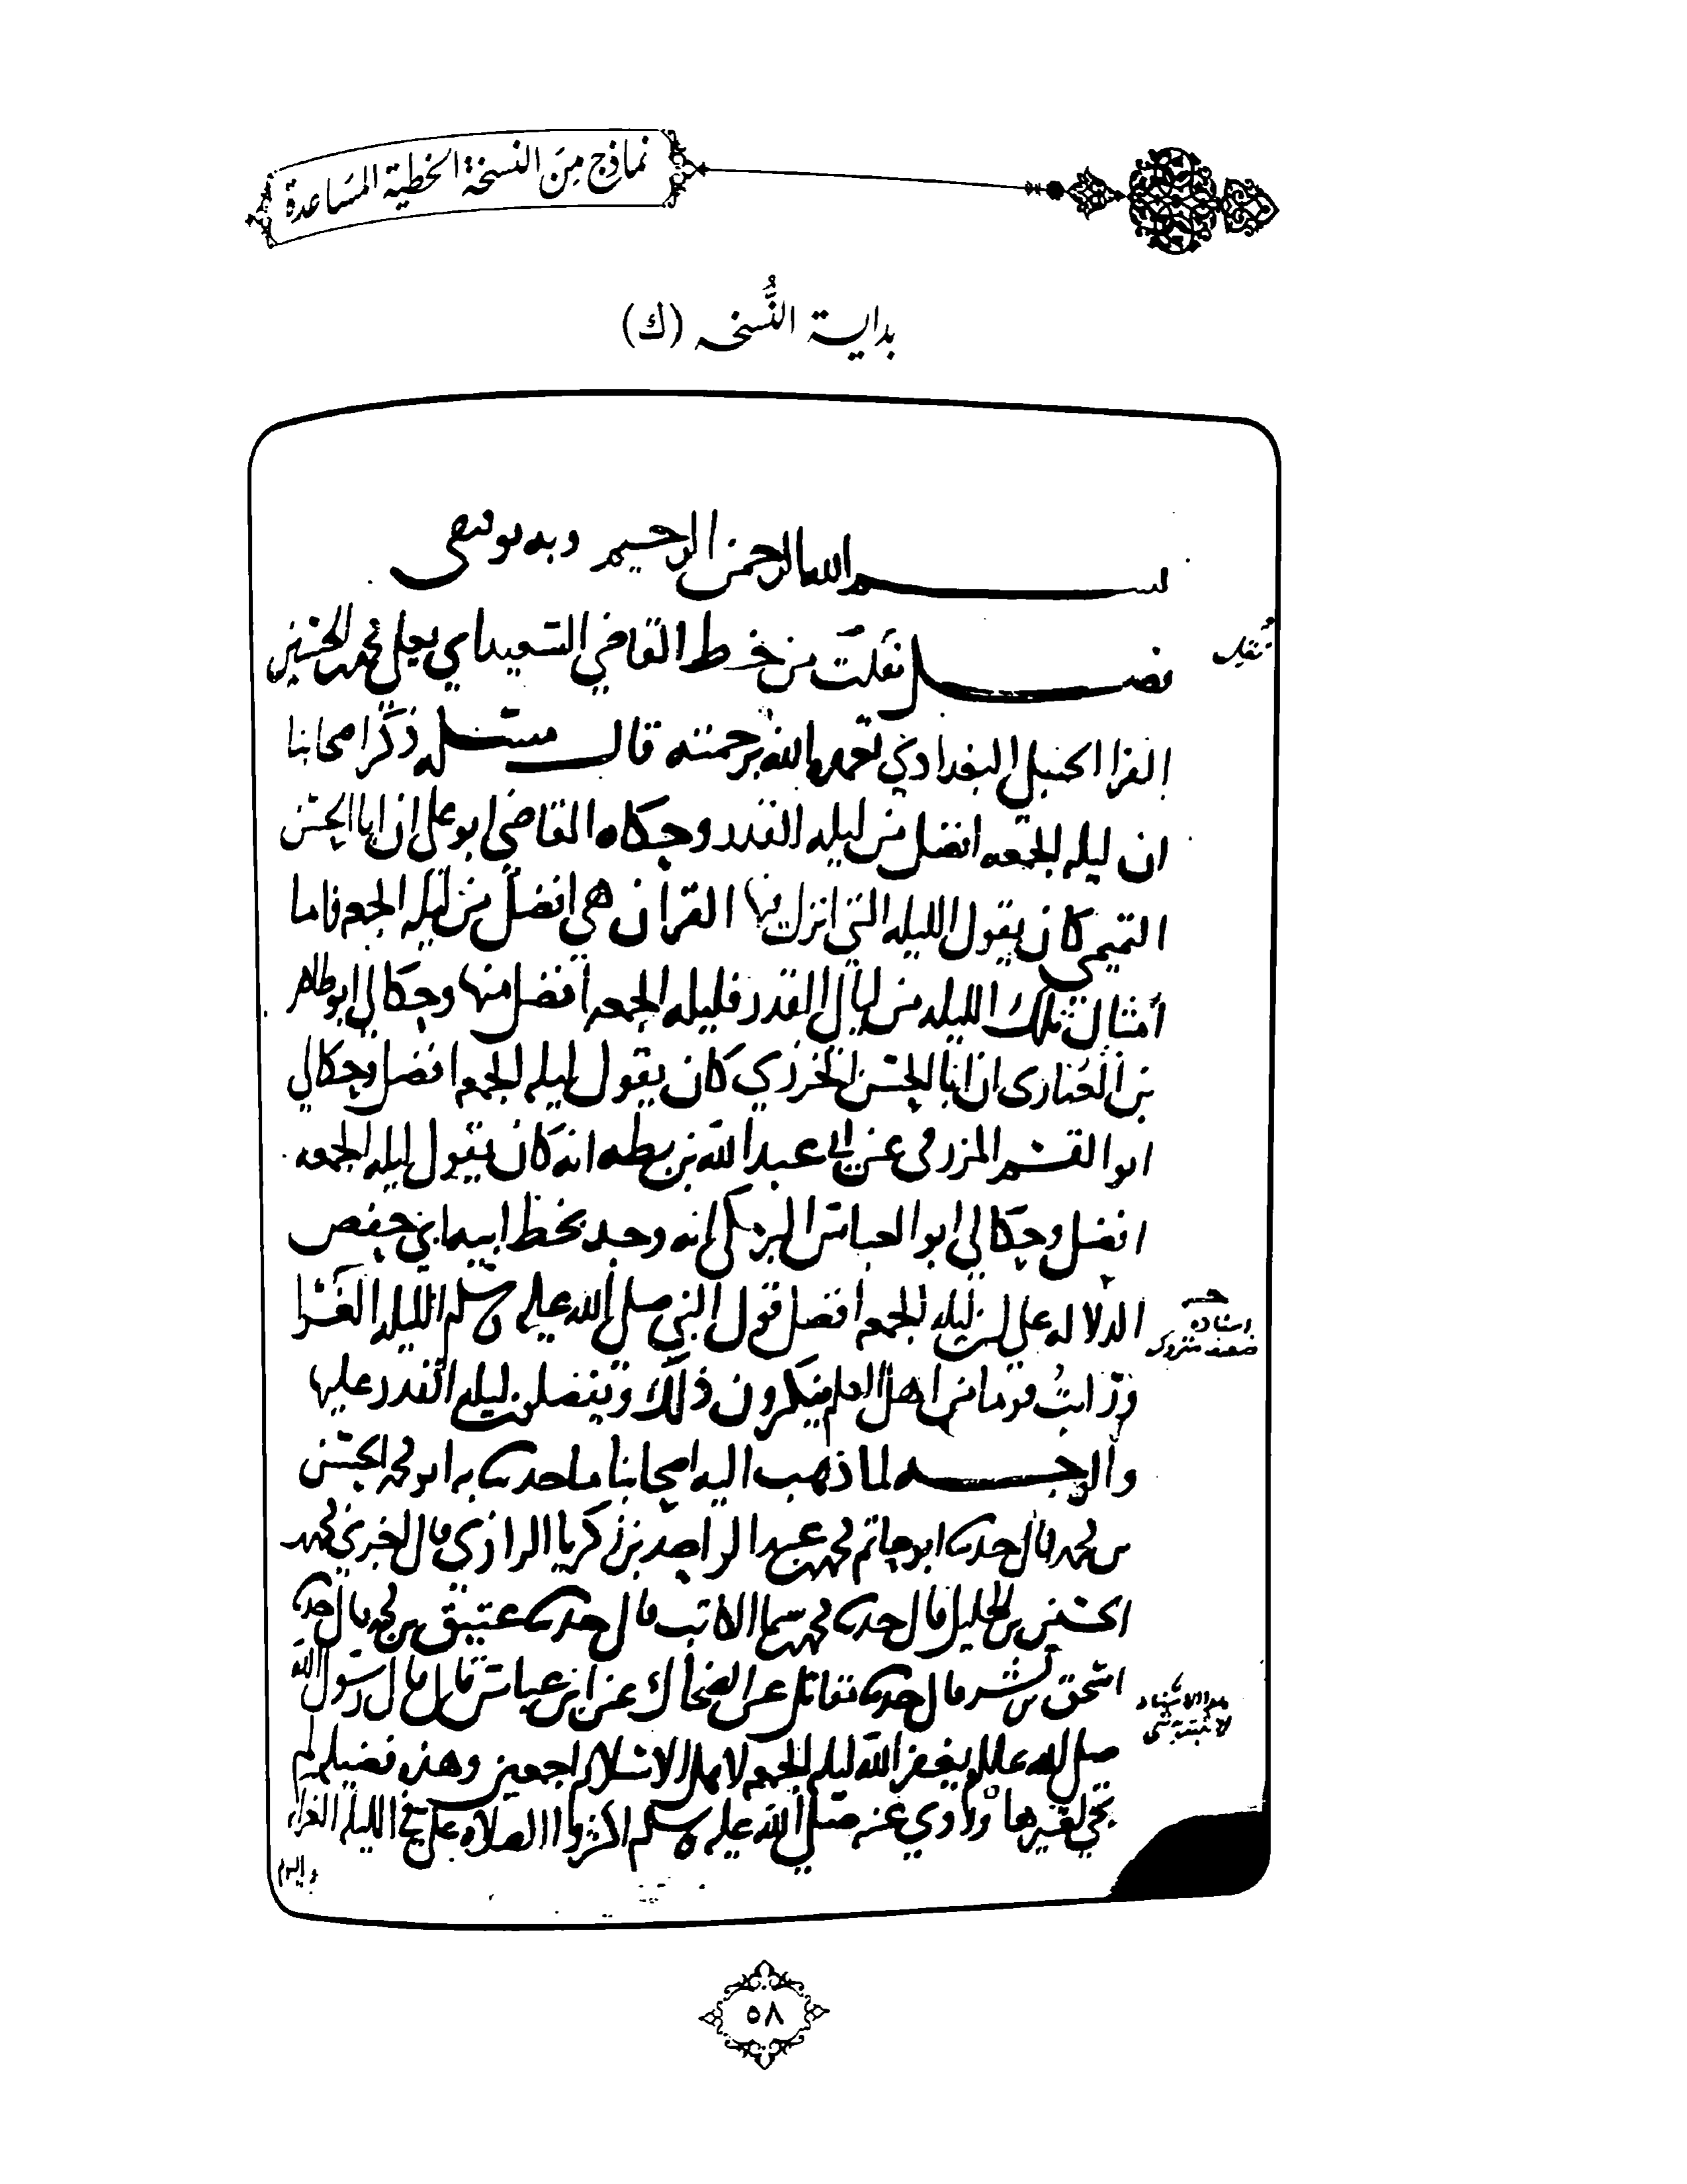 نماذج من النسخة الخطية المساعدة
بداية النُّسخہ (ك)
بسم الله الرحمن الرحيم وبه توفيقي
فصل نقلت من خط القاضي السعيد ابي يعلى محمد بن الحسين
الفرا الحنبلي البغدادي تغمده الله برحمته قال مسئله ذكر اصحابنا
ان ليله الجمعه افضل من ليله القدر وحكاه القاضي ابو علي ان ابا الحسن
التميمي كان يقول الليله التي انزل فيها القران هي افضل من ليله الجمعه فاما
أمثال تلك الليله من ليالي القدر فليله الجمعه افضل منها وحكا لي ابو طاهر
بن الغباري ان ابا الحسن الخرزي كان يقول ليله الجمعه افضل وحكا لي
ابو القسم المزرفي عن ابي عبد الله بن بطه انه كان يقول ليله الجمعه
افضل وحكا لي ابو العباس البرمكي انه وجد بخط ابيه ابي حفص
الدلاله على ان ليله الجمعه افضل قول النبي صلى الله عليه وسلم الليله الغرا
ورايتُ قوما من اهل العلم ينكرون ذلك ويفضلون ليله القدر عليها
والوجه لما ذهب اليه اصحابنا ما حدثنا به ابو محمد الحسن
بن محمد قال حدثنا ابو حاتم محمد بن عبد الواحد بن زكريا الرازي قال اخبرني محمد
الحسين بن الخليل قال حدثنا محمد الكاتب قال حدثنا عتيق بن محمد قال حدثنا
اسحق بن بشر قال حدثنا مقاتل عن الضحاك عن ابن عباس قال قال رسول الله
صلى الله عليه وسلم يغفر الله ليله الجمعه لاهل الاسلام اجمعين وهذه فضيله لم
تجي لغيرها وروي عنه صلى الله عليه وسلم اكثروا الصلاه علي في الليله الغراء
واليوم
اسناده
ضعيف متروك
هذا الاسناد
٥٨